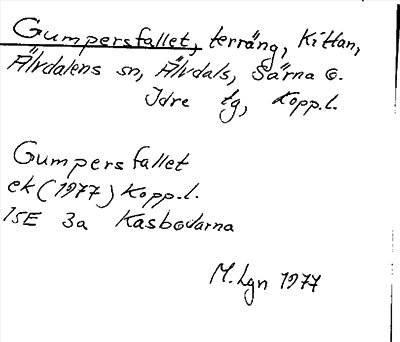 Gumpersfallet, terräng, Kittan,
Älvdalens sn, Älvdals, Särna o.
Idre tg, Kopp.l.
Gumpersfallet
ek (1977) Kopp.l.
15E 3a Kåsbodarna
M. Lgn 1977